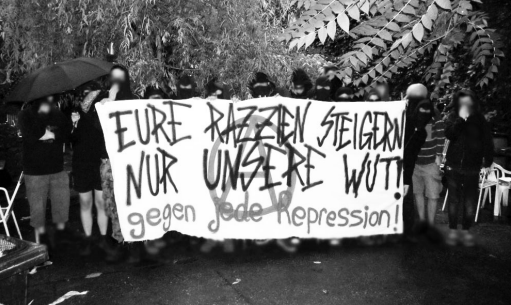 EURE RAZZIEN STEIGERN
NUR UNSERE WUT!
gegen jede Repression!